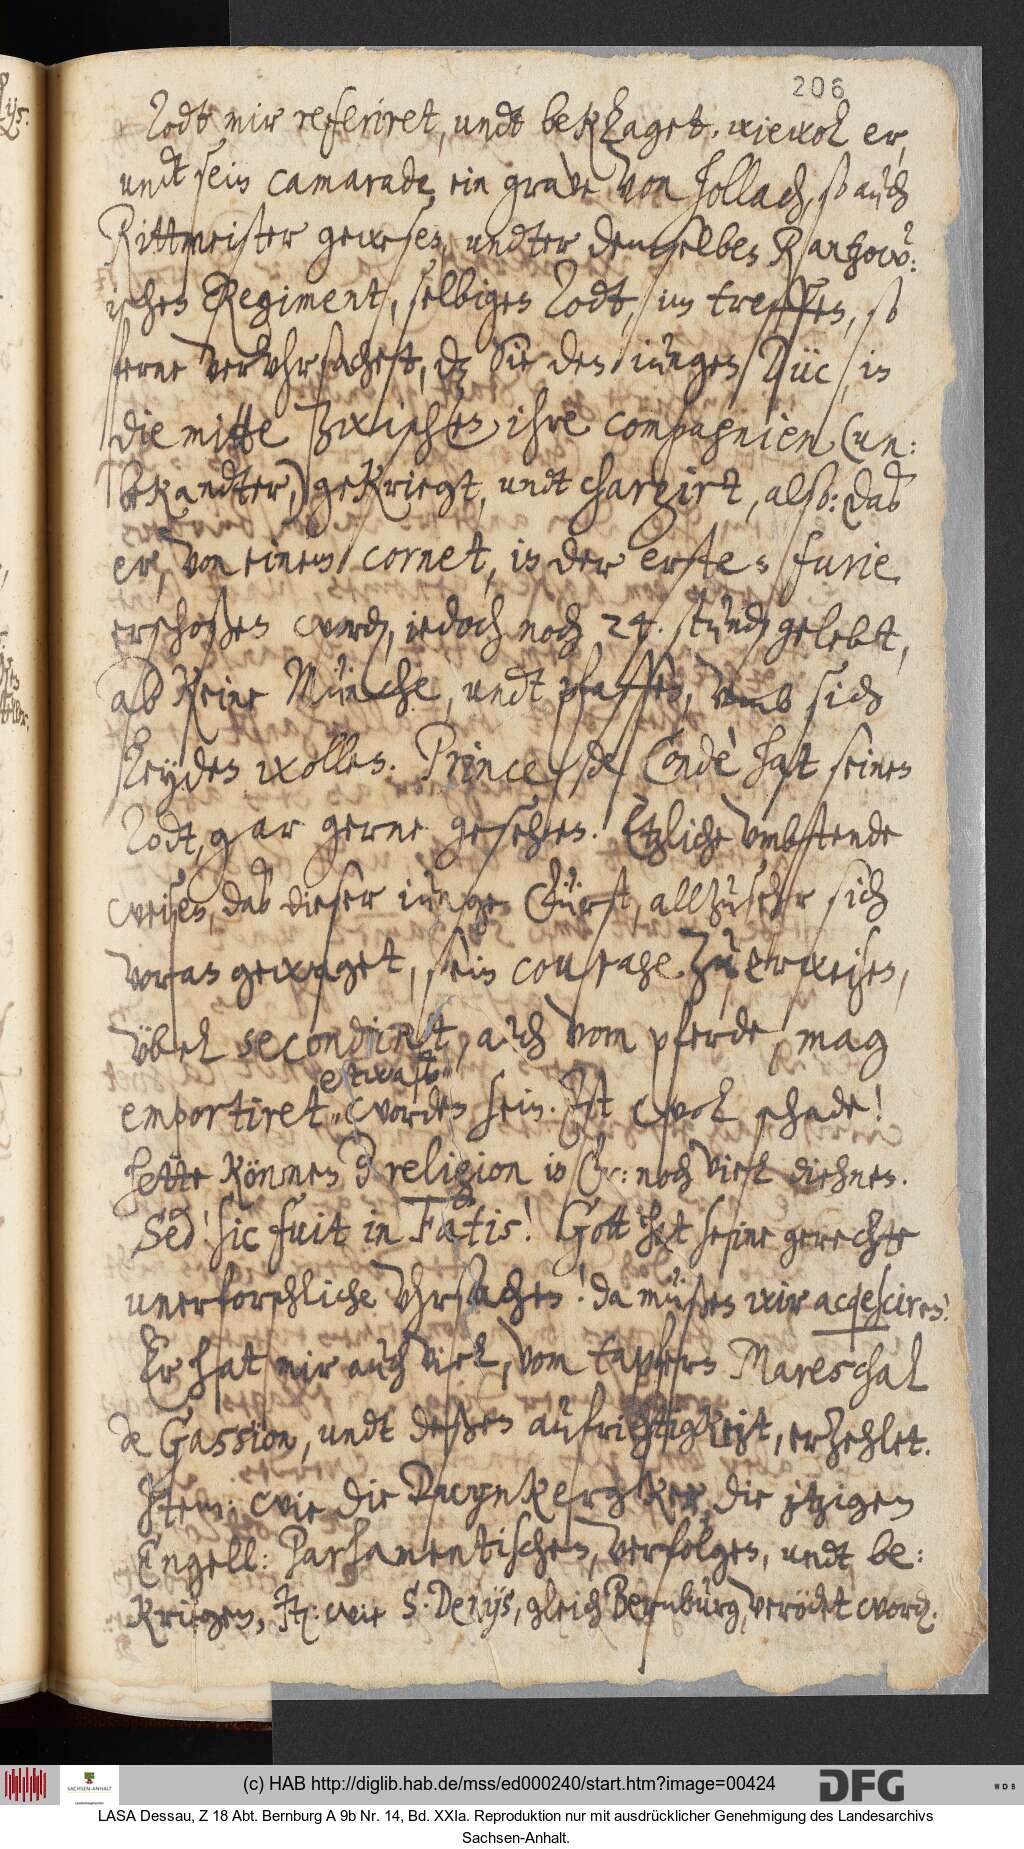 206
Todt mir referiret, undt beklaget. wiewol er,
undt sein camarade, ein grave von Hollach, so auch
Rittmeister gewesen, undter demselben Rantzow:
ischen Regiment, selbigen Todt, im treffen, so
ferne veruhrsachett, dz Sie den iungen Düc, in
die mitte Zwischen ihre compagnien (un:
bekandter,) gekriegt, undt chargirt, also: daß
er, von einem cornet, in der ersten furie
erschoßen word, iedoch noch 24. stund gelebt,
ab keine Münche, undt pfaffen, umb sich
leyden wollen. Prince de Condè hat seinen
Todt, gar gerne gesehen. Etzliche umbstende
weisen, daß dieser iunge Fürst, allzusehr sich
voran gewaget, sein courage zu erweisen,
übel secondirt, auch vom pferde, mag
etwaß
emportiret worden sein. Ist wol schade!
hette können d religion in noch viel diehnen.
Sed! sic fuit in Fatis! Gott hat seine gerechte
unerforschliche Uhrsachen! da müßen wir acqesciren!
Er hat mir auch viel, vom tapfern Mareschal
de Gassion, undt deßen aufrichtigkeit, erzehlet.
Item: wie die Duynkerker, die itzigen
Engell: Parlamentischen, verfolgen, undt be:
kriegen, It: wie S. Denys, gleich Bernburg, verödet word.
(c) HAB http://diglib.hab.de/mss/ed000240/start.htm?image=00424
SACHSEN-ANHALT
DFG
WDB
LASA Dessau, Z 18 Abt. Bernburg A 9b Nr. 14, Bd. XXIa. Reproduktion nur mit ausdrücklicher Genehmigung des Landesarchivs
Sachsen-Anhalt.